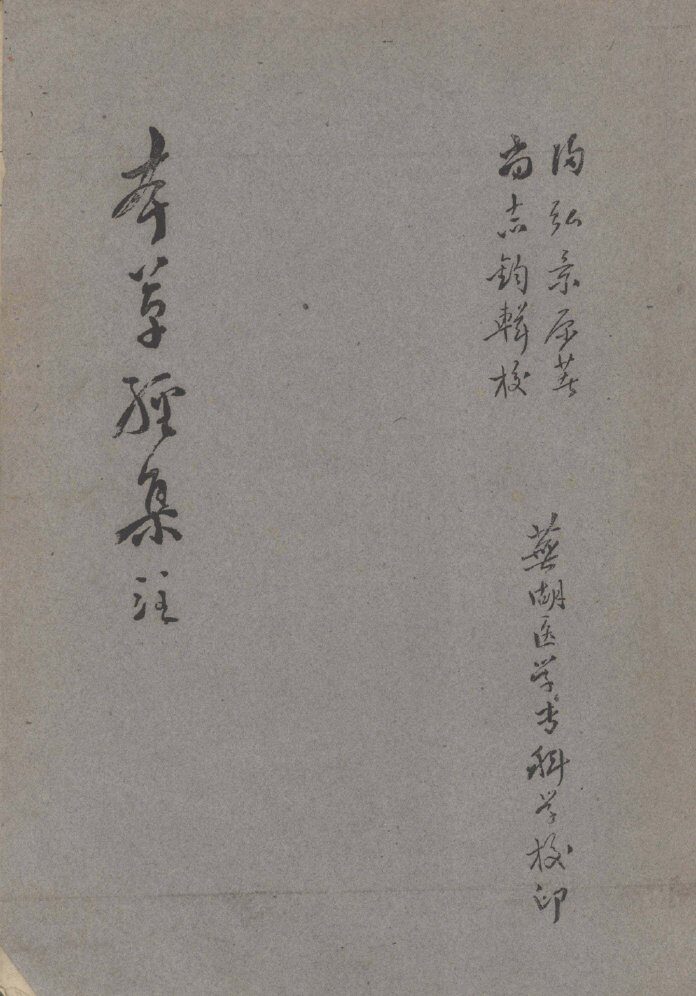 陶弘景原著
尚志鈞輯校
蕪湖医学专科学校印
本草經集註